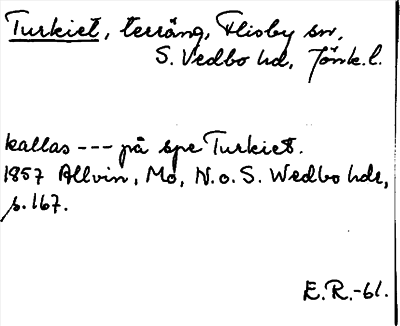 Turkiet, terräng, Flisby sn,
S. Vedbo hd, Jönk.l.
kallas --- på spe Turkiet.
1857 Allvin, Mo, N.o.S. Wedbo hdr,
s.167.
E.R.-61.